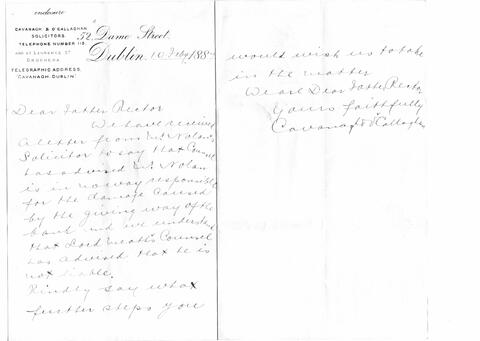 enclosure
CAVANAGH & O'CALLAGHAN
SOLICITORS.
TELEPHONE NUMBER 115.
AND AT LAURENCE ST
DROGHEDA
TELEGRAPHIC ADDRESS,
"CAVANAGH, DUBLIN"
52, Dame Street,
Dublin, 10 Feby 188
Dear Father Rector
We have received
a letter from Mr Nolan's
Solicitor to say that Counsel
has advised Mr Nolan
is in no way responsible
for the damage caused
by the giving way of the
bank and we understand
that Lord Meath's Counsel
has advised that he is
not liable.
Kindly say what
further steps you
would wish us to take
in the matter
We are Dear Father Rector
Yours faithfully
Cavanagh & O'Callaghan